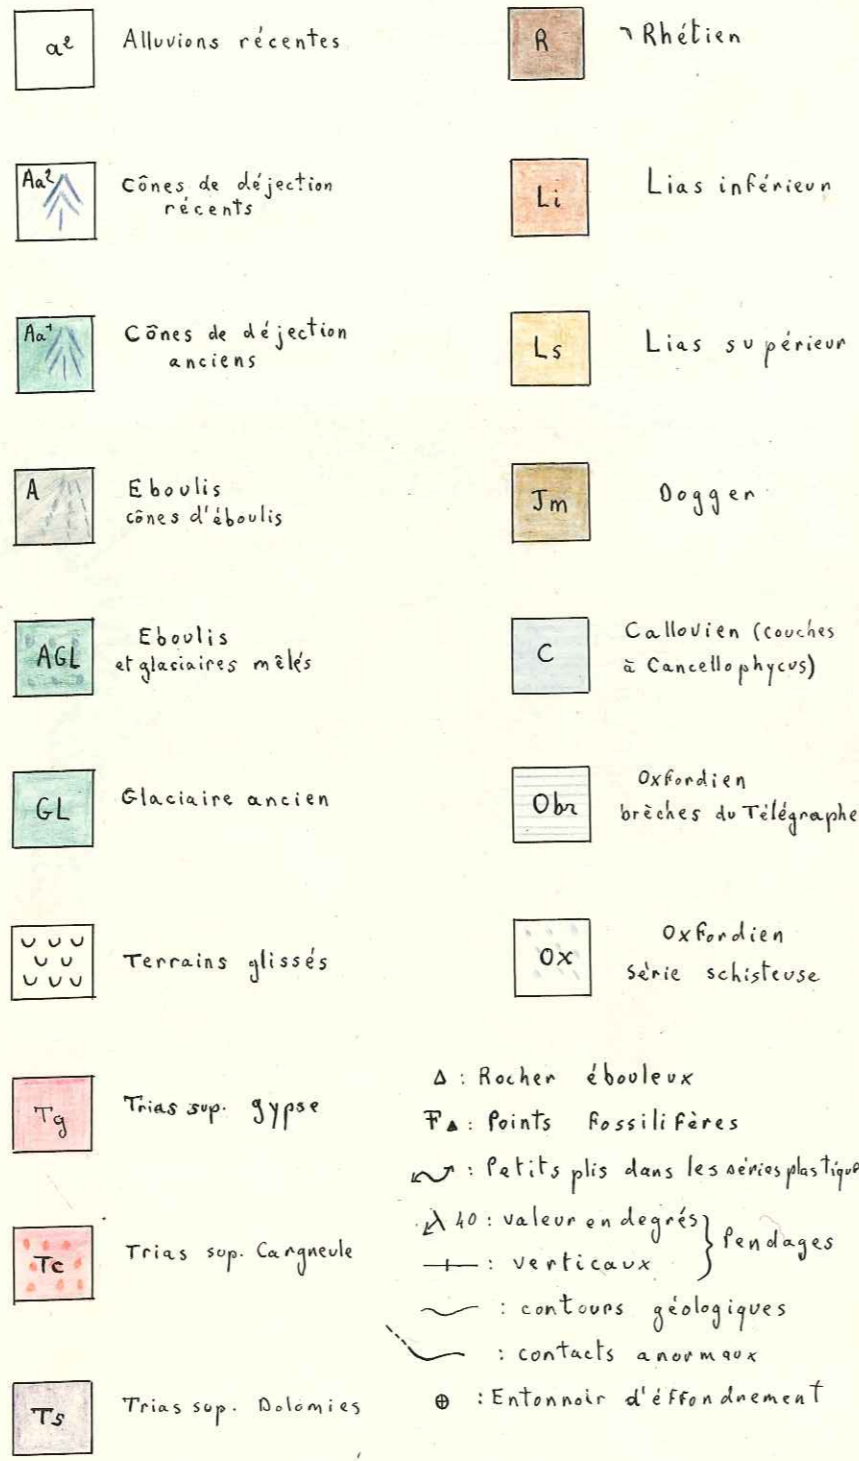 a2 Alluvions récentes
Aa2 Cônes de déjection
récents
Aa1 Cônes de déjection
anciens
A Eboulis
cônes d'éboulis
AGL Eboulis
et glaciaires mêlés
GL Glaciaire ancien
Terrains glissés
Tg Trias sup. gypse
Tc Trias sup. Cargneule
Ts Trias sup. Dolomies
R Rhétien
Li Lias inférieur
Ls Lias supérieur
Jm Dogger
C Callovien (couches
à Cancellophycus)
Obr Oxfordien
brèches du Télégraphe
Ox Oxfordien
série schisteuse
Δ : Rocher ébouleux
F▲ : Points Fossilifères
: Petits plis dans les séries plastique
40 : valeur en degrés } Pendages
: verticaux
: contours géologiques
: contacts anormaux
⊕ : Entonnoir d'éffondrement